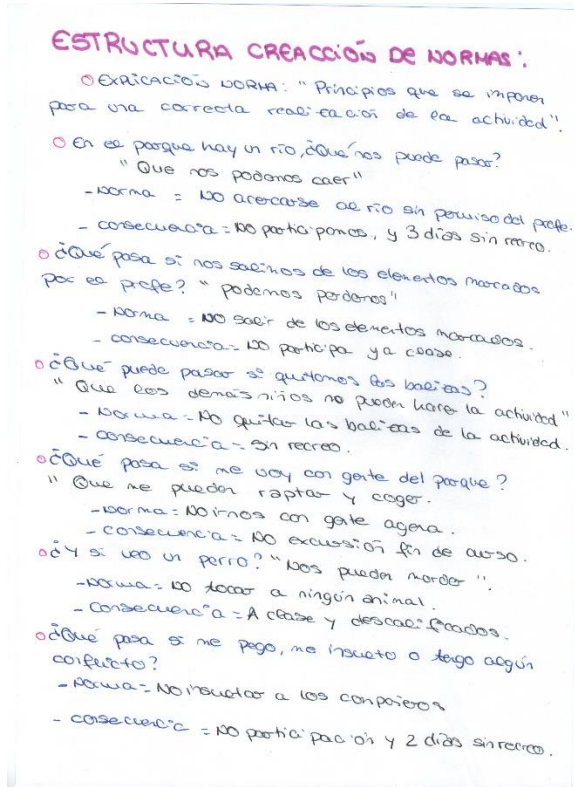 ESTRUCTURA CREACCIÓN DE NORMAS:
○ EXPLICACIÓN NORMA: "Principios que se imponen
para una correcta realización de la actividad".
○ En el parque hay un río, ¿Qué nos puede pasar?
"Que nos podemos caer"
- Norma = NO acercarse al río sin permiso del profe.
- consecuencia = NO participamos, y 3 días sin recreo.
○ ¿Qué pasa si nos salimos de los elementos marcados
por el profe? "podemos perdernos"
- Norma = NO salir de los elementos marcados.
- consecuencia = NO participa y a clase.
○ ¿Qué puede pasar si quitamos las balizas?
"Que los demás niños no pueden hacer la actividad"
- Norma = NO quitar las balizas de la actividad.
- consecuencia = sin recreo.
○ ¿Qué pasa si me voy con gente del parque?
"Que me pueden raptar y coger.
- Norma = NO irnos con gente agena.
- consecuencia = NO excursión fin de curso.
○ ¿Y si veo un perro? "Nos pueden morder".
- Norma = NO tocar a ningún animal.
- consecuencia = A clase y descalificados.
○ ¿Qué pasa si me pego, me insulto o tengo algún
conflicto?
- Norma = No insultar a los compañeros
- consecuencia = NO participación y 2 días sin recreo.